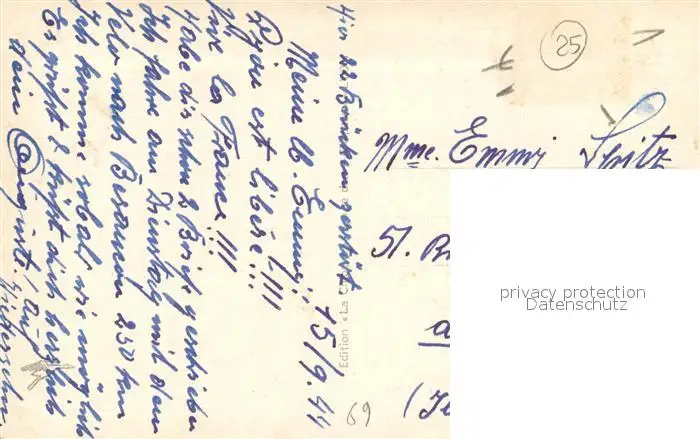 Hier 22 Brücken zerstört
15/9.44
Meine lb. Emmy!
Dijon est libéré!!!
Vive la France!!!
Habe dir schon 2 Briefe geschrieben
Ich fahre am Dienstag mit dem
Velo nach Besançon 250 km
Ich komme sobald wie möglich
Es grüsst & küsst dich herzlich
dein Auguste.
auf Wiedersehn
Edition « La C
Mme. Emmy Spitz
51. B
a
(Is
25
69
privacy protection
Datenschutz